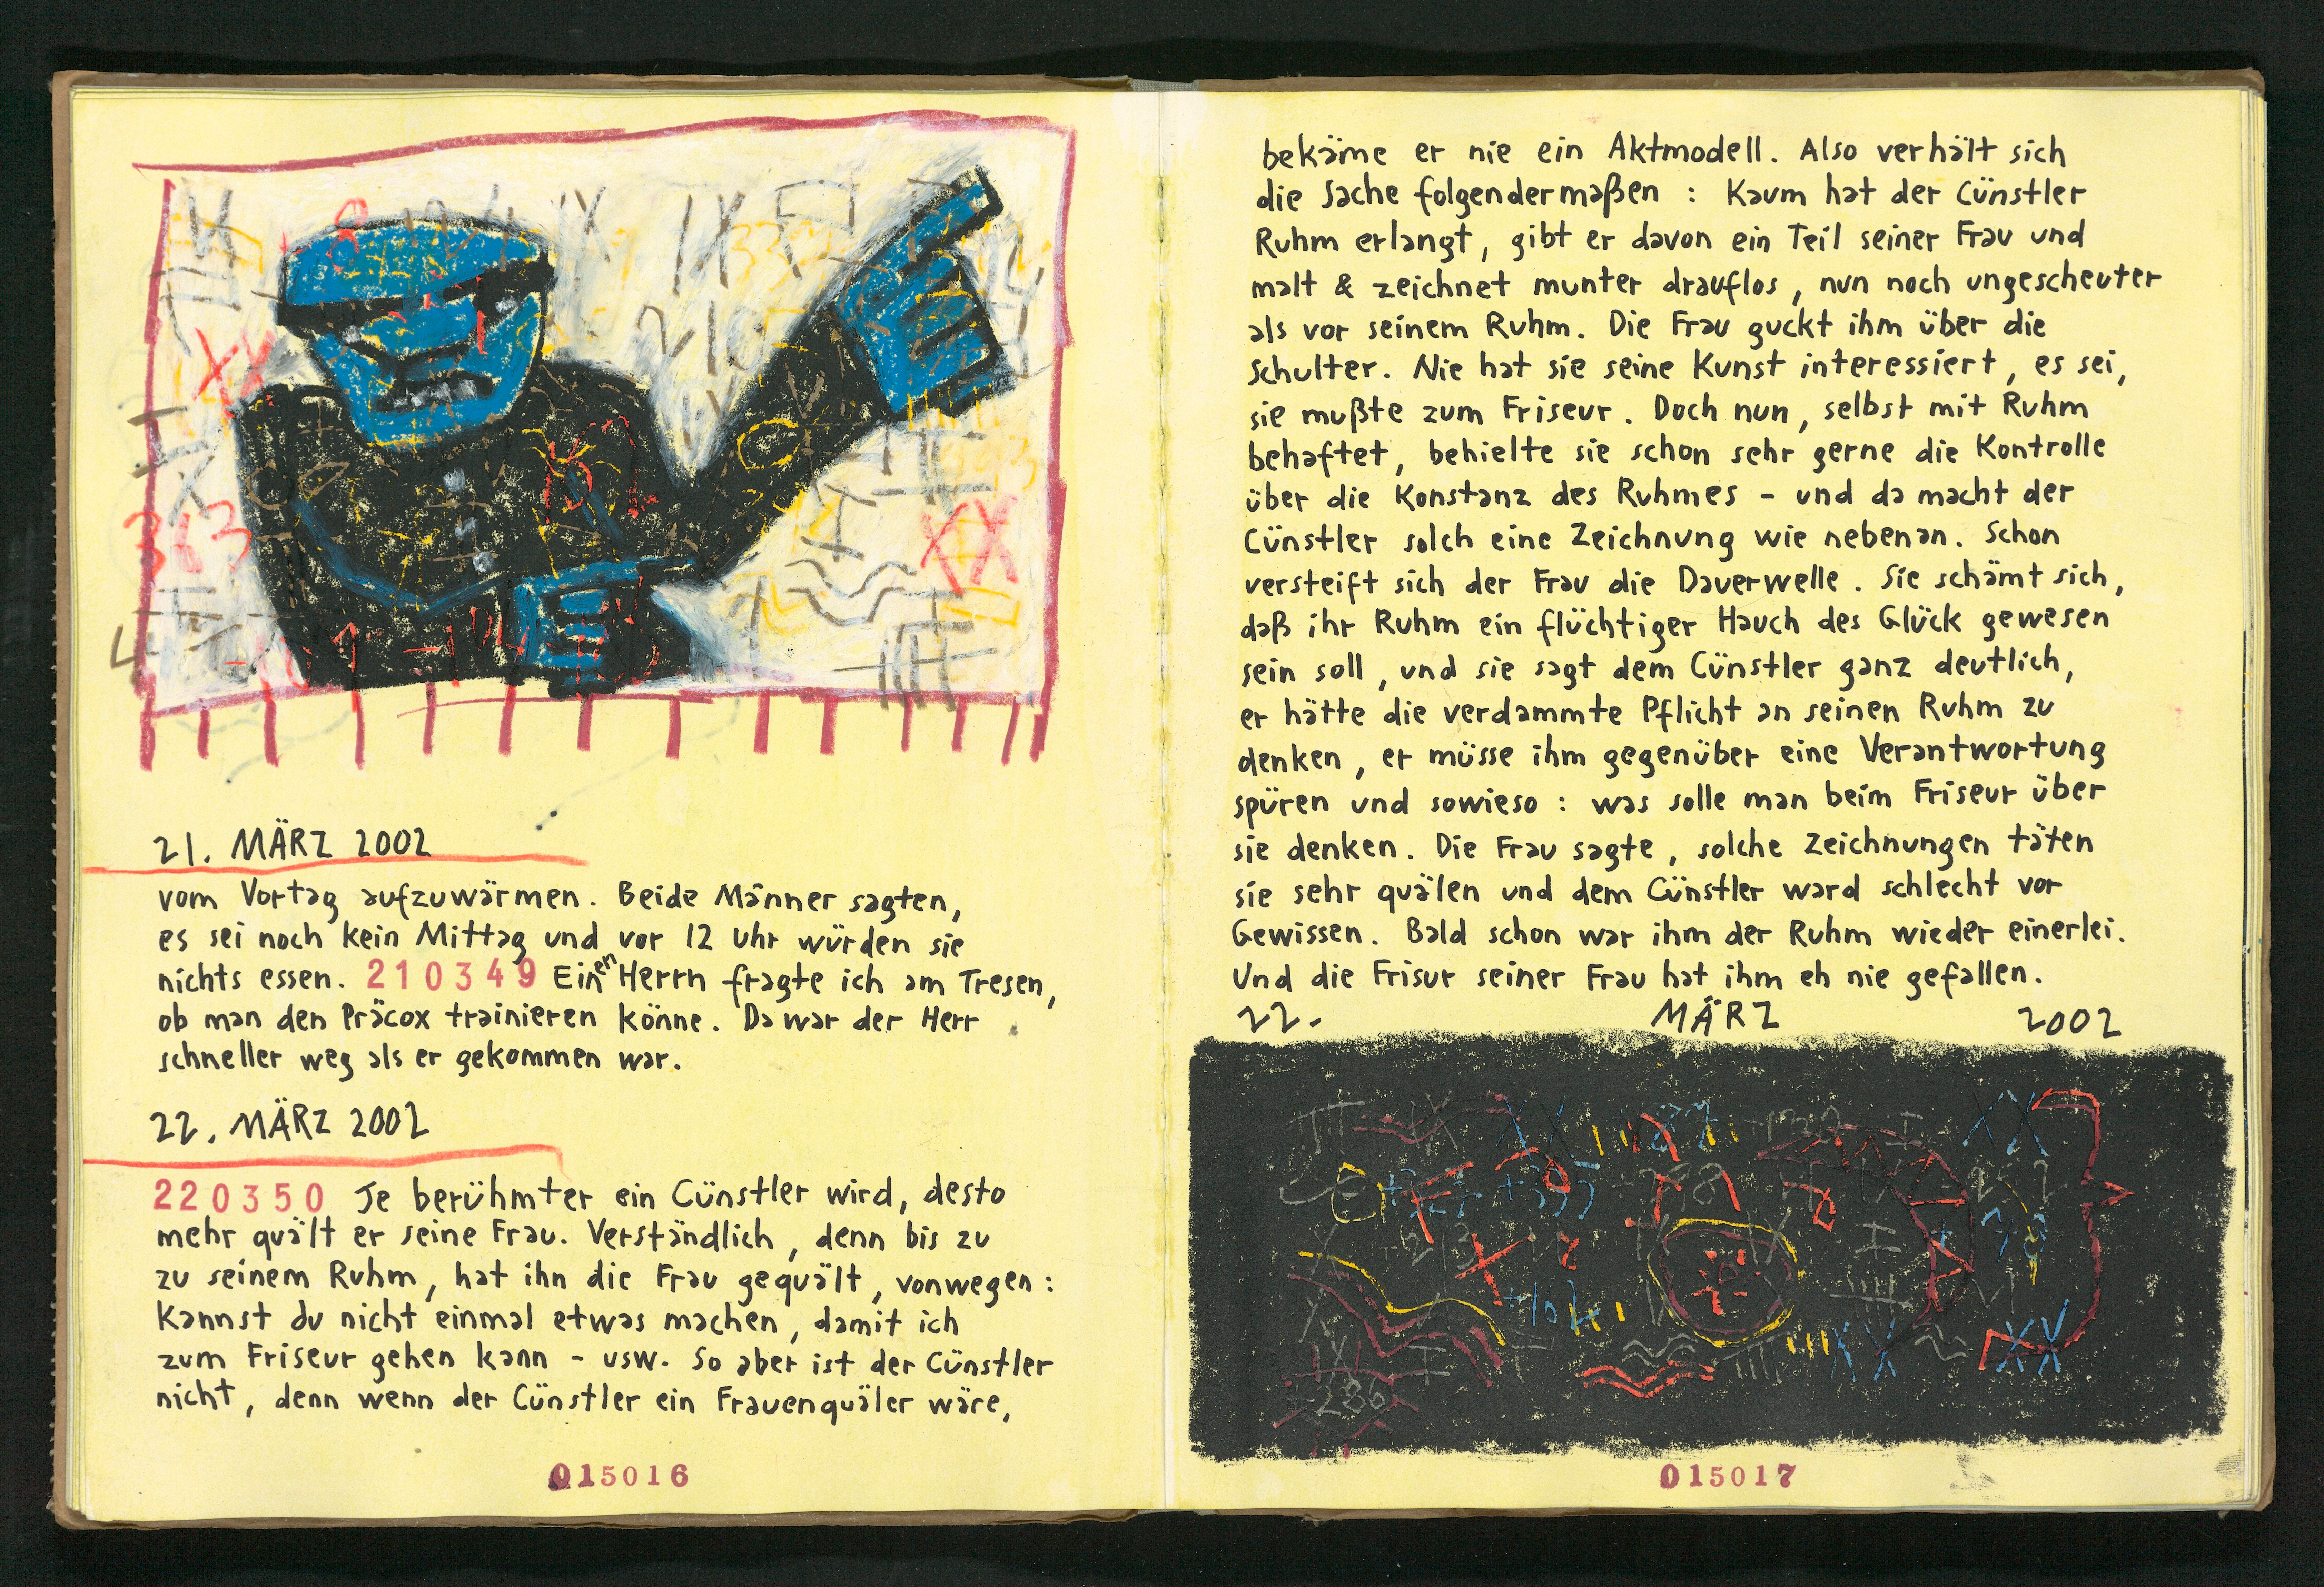 21. MÄRZ 2002
vom Vortag aufzuwärmen. Beide Männer sagten,
es sei noch kein Mittag und vor 12 Uhr würden sie
nichts essen. 210349 Einen Herrn fragte ich am Tresen,
ob man den Präcox trainieren könne. Da war der Herr
schneller weg als er gekommen war.
22. MÄRZ 2002
220350 Je berühmter ein Cünstler wird, desto
mehr quält er seine Frau. Verständlich, denn bis zu
zu seinem Ruhm, hat ihn die Frau gequält, vonwegen:
Kannst du nicht einmal etwas machen, damit ich
zum Friseur gehen kann - usw. So aber ist der Cünstler
nicht, denn wenn der Cünstler ein Frauenquäler wäre,
015016
bekäme er nie ein Aktmodell. Also verhält sich
die Sache folgendermaßen: Kaum hat der Cünstler
Ruhm erlangt, gibt er davon ein Teil seiner Frau und
malt & zeichnet munter drauflos, nun noch ungescheuter
als vor seinem Ruhm. Die Frau guckt ihm über die
Schulter. Nie hat sie seine Kunst interessiert, es sei,
sie mußte zum Friseur. Doch nun, selbst mit Ruhm
behaftet, behielte sie schon sehr gerne die Kontrolle
über die Konstanz des Ruhmes - und da macht der
Cünstler solch eine Zeichnung wie nebenan. Schon
versteift sich der Frau die Dauerwelle. Sie schämt sich,
daß ihr Ruhm ein flüchtiger Hauch des Glück gewesen
sein soll, und sie sagt dem Cünstler ganz deutlich,
er hätte die verdammte Pflicht an seinen Ruhm zu
denken, er müsse ihm gegenüber eine Verantwortung
spüren und sowieso: was solle man beim Friseur über
sie denken. Die Frau sagte, solche Zeichnungen täten
sie sehr quälen und dem Cünstler ward schlecht vor
Gewissen. Bald schon war ihm der Ruhm wieder einerlei.
Und die Frisur seiner Frau hat ihm eh nie gefallen.
22. MÄRZ 2002
015017